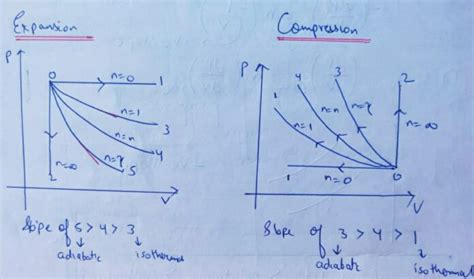 Expansion
P
0
n=0
1
n=1
3
n=n
4
n=γ
5
n=∞
2
V
Slope of 5 > 4 > 3
adiabatic
isothermal
Compression
P
1
4
3
2
n=γ
n=n
n=1
n=∞
1
n=0
0
V
Slope of 3 > 4 > 1
adiabatic
isothermal